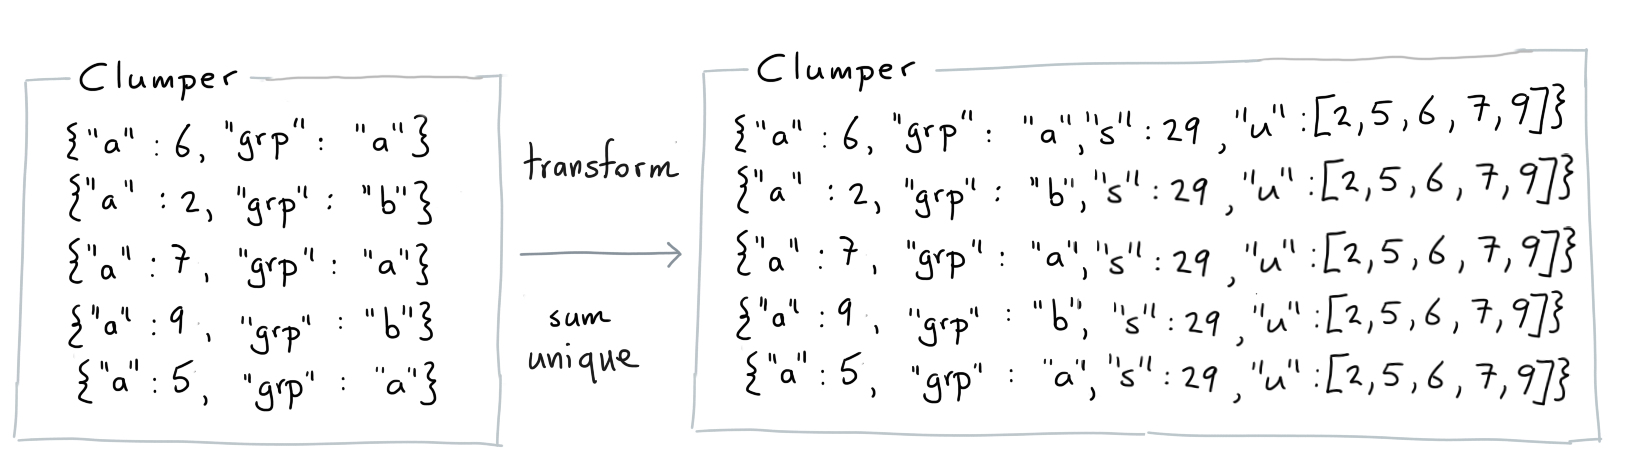 Clumper
{"a" : 6, "grp" : "a"}
{"a" : 2, "grp" : "b"}
{"a" : 7, "grp" : "a"}
{"a" : 9, "grp" : "b"}
{"a" : 5, "grp" : "a"}
transform
sum
unique
Clumper
{"a" : 6, "grp" : "a", "s" : 29, "u" : [2, 5, 6, 7, 9]}
{"a" : 2, "grp" : "b", "s" : 29, "u" : [2, 5, 6, 7, 9]}
{"a" : 7, "grp" : "a", "s" : 29, "u" : [2, 5, 6, 7, 9]}
{"a" : 9, "grp" : "b", "s" : 29, "u" : [2, 5, 6, 7, 9]}
{"a" : 5, "grp" : "a", "s" : 29, "u" : [2, 5, 6, 7, 9]}